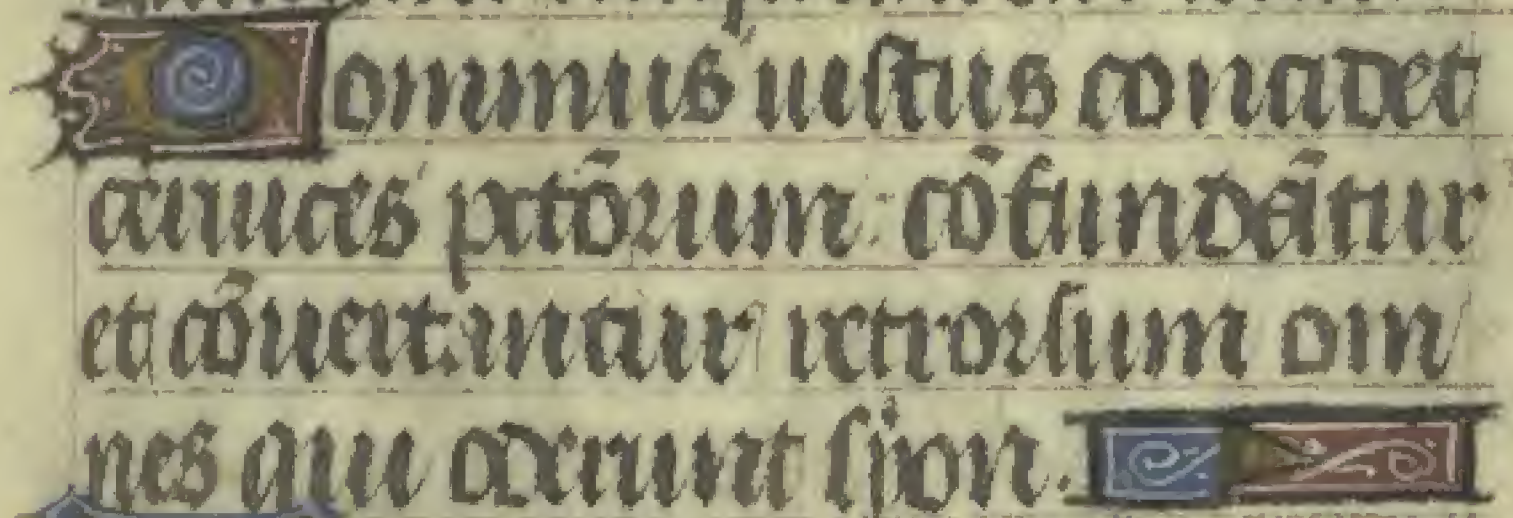 Dominus iustus concidet
ceruices pctōrum : cōfundātur
et cōuertantur retrorsum om
nes qui oderunt syon.